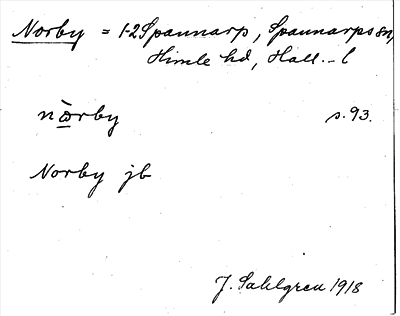 Norby = 1-2 Spannarp, Spannarps sn,
Himle hd, Hall. - l
nòrby s. 93.
Norby jb
J. Sahlgren 1918